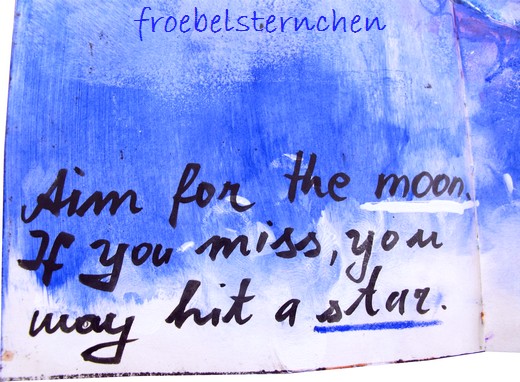 froebelsternchen
Aim for the moon.
If you miss, you
may hit a star.